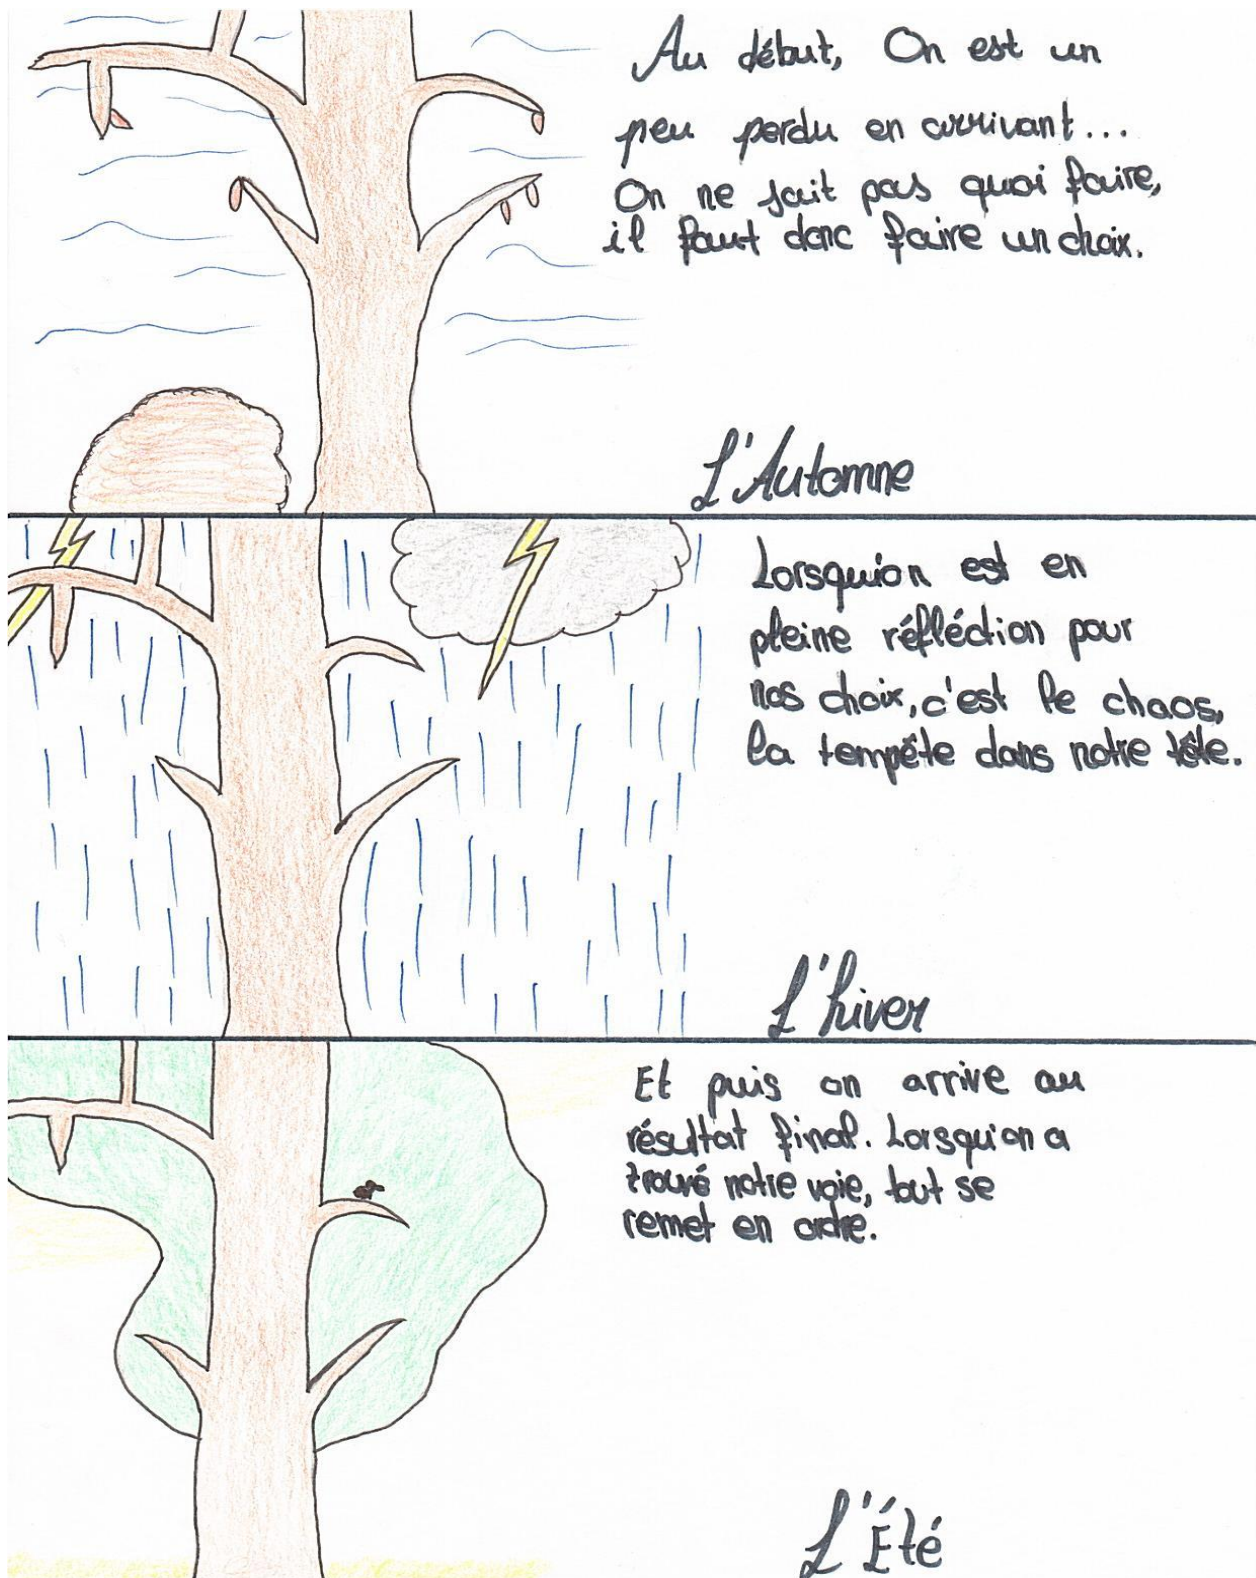 Au début, On est un
peu perdu en arrivant...
On ne sait pas quoi faire,
il faut donc faire un choix.
L'Automne
Lorsqu'on est en
pleine réfléction pour
nos choix, c'est le chaos,
la tempête dans notre tête.
L'hiver
Et puis on arrive au
résultat final. Lorsqu'on a
trouvé notre voie, tout se
remet en ordre.
L'Été